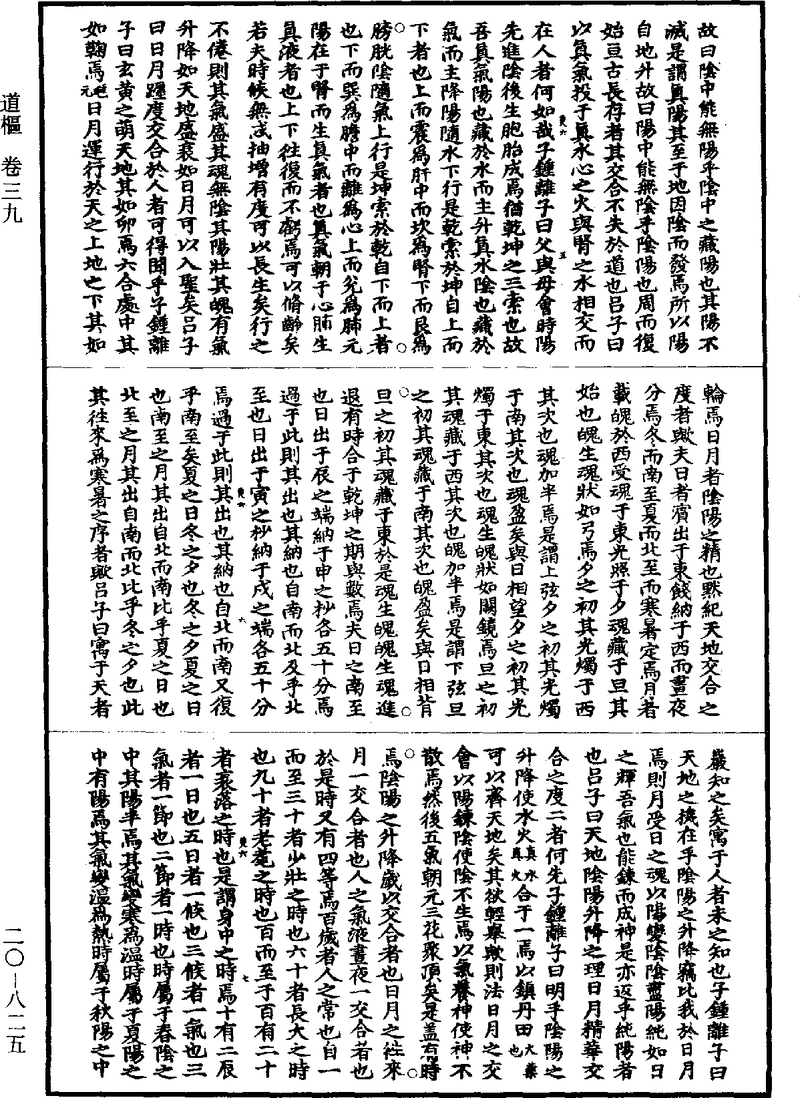 道樞　卷三九
二〇—八二五
故曰陰中能無陽乎陰中之藏陽也其陽不
滅是謂眞陽其至于地因陰而發焉所以陽
自地升故曰陽中能無陰乎陰陽也周而復
始亘古長存者其交合不失於道也呂子曰
以眞氣投于眞水心之火與腎之水相交而
在人者何如哉子鍾離子曰父與母會時陽
先進陰後生胞胎成焉猶乾坤之三索也故
吾眞氣陽也藏於水而主升眞水陰也藏於
氣而主降陽隨水下行是乾索於坤自上而
下者也上而震爲肝中而坎爲腎下而艮爲
膀胱陰隨氣上行是坤索於乾自下而上者
也下而巽爲膽中而離爲心上而兌爲肺元
陽在于腎而生眞氣者也眞氣朝于心肺生
眞液者也上下往復而不虧焉可以脩齡矣
若夫時候無忒抽增有度可以長生矣行之
不倦則其氣盛其魂無陰其陽壯其魄有氣
升降如天地盛衰如日月可以入聖矣呂子
曰日月躔度交合於人者可得聞乎子鍾離
子曰玄黄之萌天地其如卵焉六合處中其
如鞠焉日月運行於天之上地之下其如
輪焉日月者陰陽之精也默紀天地交合之
度者歟夫日者濱出于東餞納于西而晝夜
分焉冬而南至夏而北至而寒暑定焉月者
載魄於西受魂于東光照于夕魂藏于旦其
始也魄生魂狀如弓焉夕之初其光燭于西
其次也魂加半焉是謂上弦夕之初其光燭
于南其次也魂盈矣與日相望夕之初其光
燭于東其次也魂生魄狀如闕鏡焉旦之初
其魂藏于西其次也魄加半焉是謂下弦旦
之初其魂藏于南其次也魄盈矣與日相背
旦之初其魂藏于東於是魂生魄魄生魂進
退有時合于乾坤之期與數焉夫日之南至
也日出于辰之端納于申之杪各五十分焉
過于此則其出也其納也自南而北及乎北
至也日出于寅之杪納于戌之端各五十分
焉過于此則其出也其納也自北而南又復
乎南至矣夏之日冬之夕也冬之夕夏之日
也南至之月其出自北而南比乎夏之日也
北至之月其出自南而北比乎冬之夕也此
其往來爲寒暑之序者歟呂子曰寓于天者
嚴知之矣寓于人者未之知也子鍾離子曰
天地之機在乎陰陽之升降竊比我於日月
焉則月受日之魂以陽變陰陰盡陽純如日
之輝吾氣也能鍊而成神是亦返乎純陽者
也呂子曰天地陰陽升降之理日月精華交
合之度二者何先子鍾離子曰明乎陰陽之
升降使水火眞水眞火合于一焉以鎮丹田大藥也
可以齊天地矣其欲輕舉歟則法日月之交
會以陽鍊陰使陰不生焉以氣養神使神不
散焉然後五氣朝元三花聚頂矣是蓋有時
焉陰陽之升降歲以交合者也日月之往來
月一交合者也人之氣液晝夜一交合者也
於是時又有四等焉百歲者人之常也自一
而至三十者少壯之時也六十者長大之時
也九十者老耄之時也百而至于百有二十
者衰落之時也是謂身中之時焉十有二辰
者一日也五日者一候也三候者一氣也三
氣者一節也二節者一時也時屬于春陰之
中其陽半焉其氣變寒爲溫時屬于夏陽之
中有陽焉其氣變溫爲熱時屬于秋陽之中